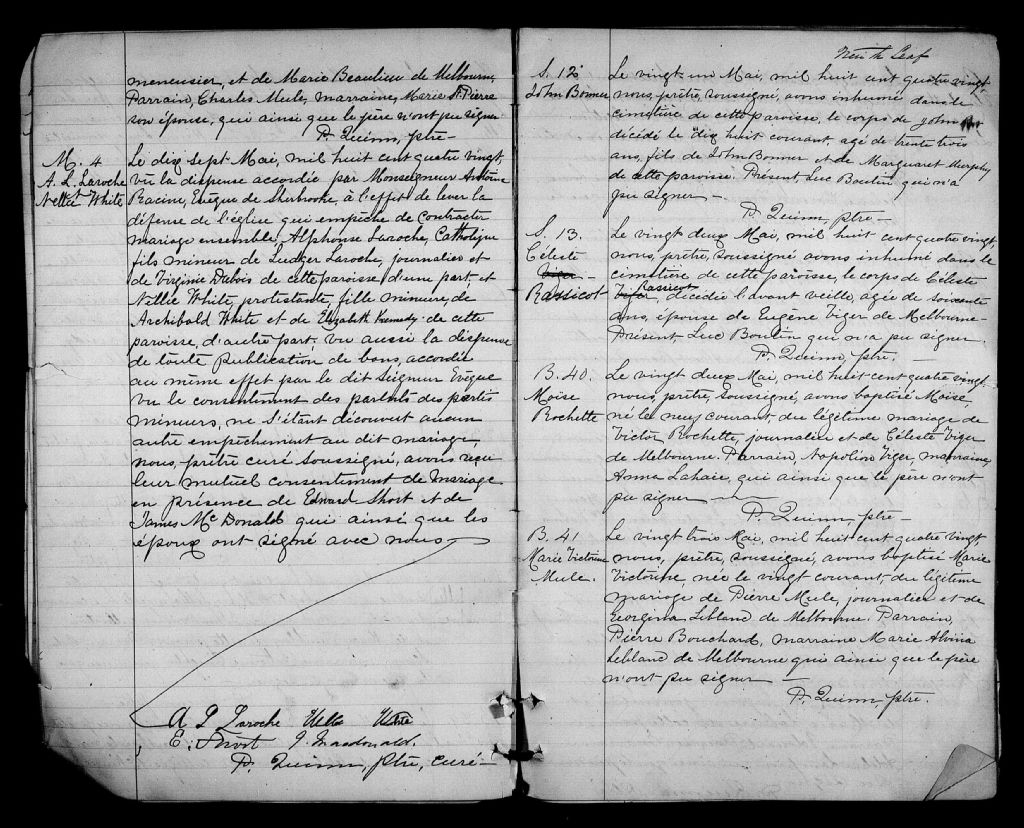 meneusier, et de Marie Beaulieu de Melbourne,
Parrain, Charles Mule, marraine, Marie St. Pierre
son épouse, qui ainsi que le père n'ont pu signer
P. Quinn, ptre –
M. 4
A. L. Laroche
et
Nettie White
Le dix sept Mai, mil huit cent quatre vingt,
vu la dispense accordée par Monseigneur Antoine
Racine, Evêque de Sherbrooke, à l'effet de lever la
défense de l'église qui empêche de contracter
mariage ensemble, Alphonse Laroche, Catholique
fils mineur de Ludger Laroche, journalier et
de Virginie Dubois de cette paroisse d'une part, et
Nellie White, protestante, fille mineure, de
Archibald White et de Elizabeth Kennedy de cette
paroisse, d'autre part, vu aussi la dispense
de toute publication de bans, accordée
au même effet par le dit Seigneur Evêque
vu le consentement des parents des parties
mineurs, ne s'étant découvert aucun
autre empêchement au dit mariage,
nous, prêtre curé soussigné, avons reçu
leur mutuel consentement de mariage
en présence de Edward Short et de
James McDonald qui ainsi que les
époux ont signé avec nous –
A L Laroche Nettie White
E. Short J. Macdonald.
P. Quinn, ptre, curé –
Leaf
S. 12
John Bonner
Le vingt-un Mai, mil huit cent quatre vingt
nous, prêtre, soussigné, avons inhumé dans le
cimetière de cette paroisse, le corps de John
décédé le dix huit courant, agé de trente trois
ans, fils de John Bonner et de Marguaret Murphy
de cette paroisse. Présent, Luc Boutin qui n'a
pu signer –
P. Quinn, ptre –
S. 13.
Céleste
Viger –
Rassicot
Le vingt deux Mai, mil huit cent quatre vingt
nous, prêtre, soussigné avons inhumé dans le
cimetière de cette paroisse, le corps de Céleste
Rassicot
Viger, décédée l'avant veille, agée de soixante
ans, épouse de Eugène Viger de Melbourne –
Présent, Luc Boutin qui n'a pu signer.
P. Quinn, ptre. –
B. 40.
Moise
Rochette
Le vingt deux Mai, mil huit cent quatre vingt
nous, prêtre, soussigné, avons baptisé Moise,
né le neuf courant, du légitime mariage de
Victor Rochette, journalier et de Céleste Viger
de Melbourne. Parrain, Napoléon Viger marraine,
Anna Lahaie, qui ainsi que le père n'ont
pu signer –
P. Quinn, ptre –
B. 41
Marie Victorine
Mule.
Le vingt trois Mai, mil huit cent quatre vingt
nous, prêtre, soussigné, avons baptisé Marie
Victorine, née le vingt courant, du légitime
mariage de Pierre Mule, journalier et de
Georgina Lebland de Melbourne. Parrain,
Pierre Bouchard, marraine Marie Alvina
Lebland de Melbourne qui ainsi que le père
n'ont pu signer –
P. Quinn, ptre.